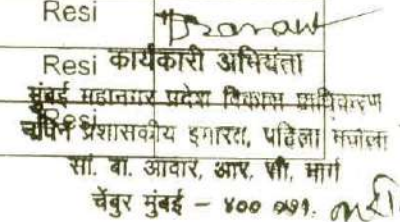 Resi
Resi कार्यकारी अभियंता
मुंबई महानगर प्रदेश विकास प्राधिकरण
Resi
प्रशासकीय इमारत, पहिला मजला
सां. बा. आवार, आर. सी. मार्ग
चेंबुर मुंबई - ४०० ०७१.